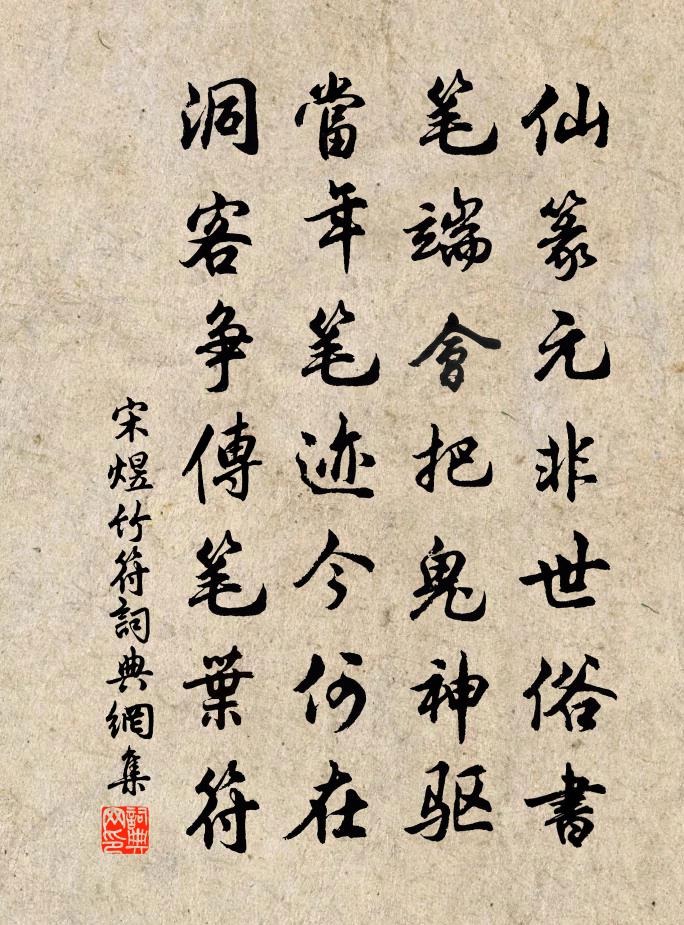 仙篆元非世俗書
笔端會把鬼神驱
當年笔迹今何在
洞客争傳笔葉符
宋煜竹符詞典網集
詞典网印